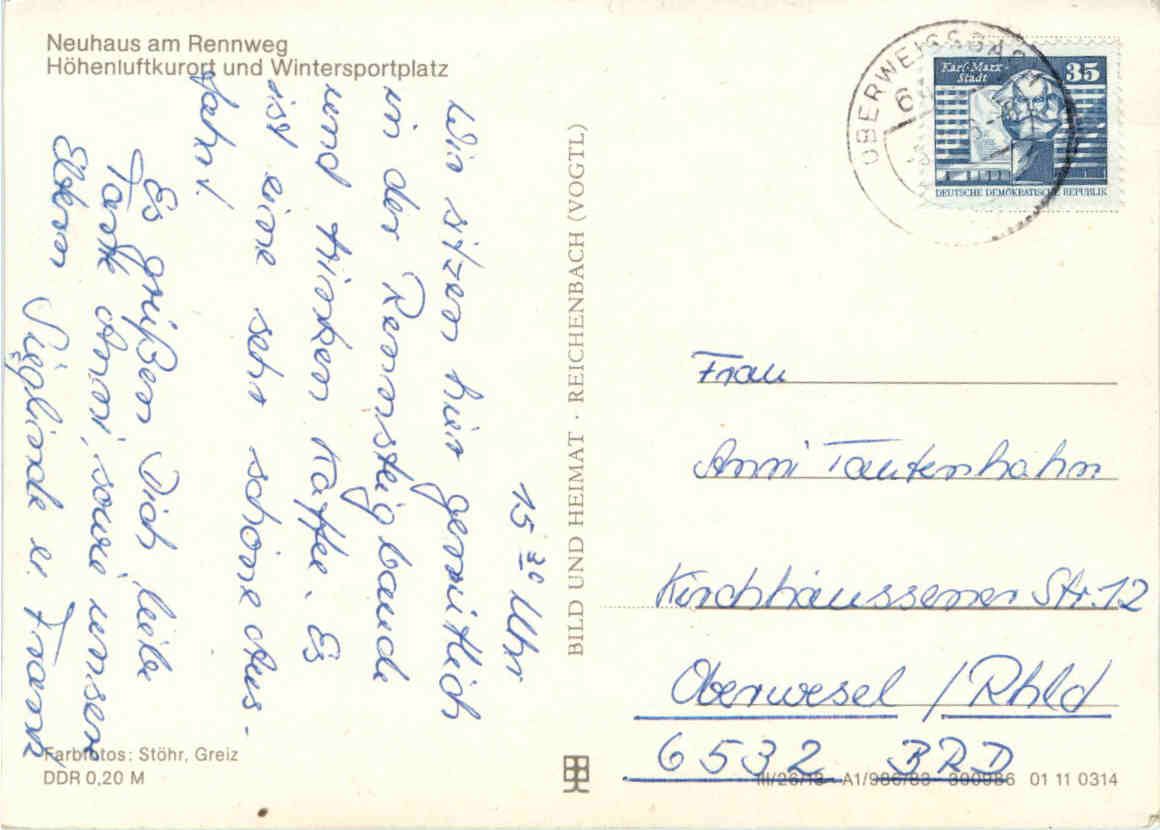 Neuhaus am Rennweg
Höhenluftkurort und Wintersportplatz
15³⁰ Uhr
Wir sitzen hier gemütlich
in der Rennsteigbaude
und trinken Kaffee. Es
ist eine sehr schöne Aus-
fahrt.
Es grüßen Dich liebe
Tante Anni, sowie unsere
Eltern Sieglinde u. Frank
Farbfotos: Stöhr, Greiz
DDR 0,20 M
BILD UND HEIMAT · REICHENBACH (VOGTL)
OBERWEISSBACH
Karl-Marx-
Stadt
35
DEUTSCHE DEMOKRATISCHE REPUBLIK
Frau
Anni Tautenhahn
Kirchhäussener Str. 12
Oberwesel / Rhld
6532 BRD
III/26/13 A1/986/83 300986 01 11 0314